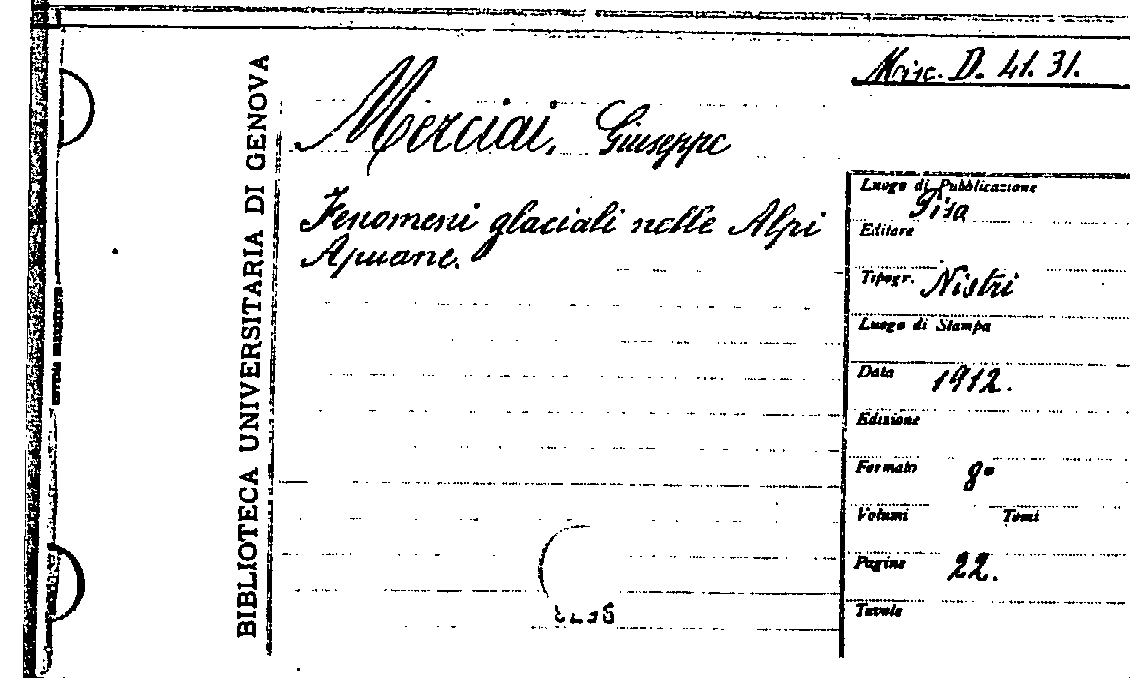 BIBLIOTECA UNIVERSITARIA DI GENOVA
Misc. D. 41. 31.
Merciai, Giuseppe
Fenomeni glaciali nelle Alpi
Apuane.
Luogo di Pubblicazione
Pisa
Editore
Tipogr. Nistri
Luogo di Stampa
Data 1912.
Edizione
Formato 8°
Volumi Tomi
Pagine 22.
Tavole